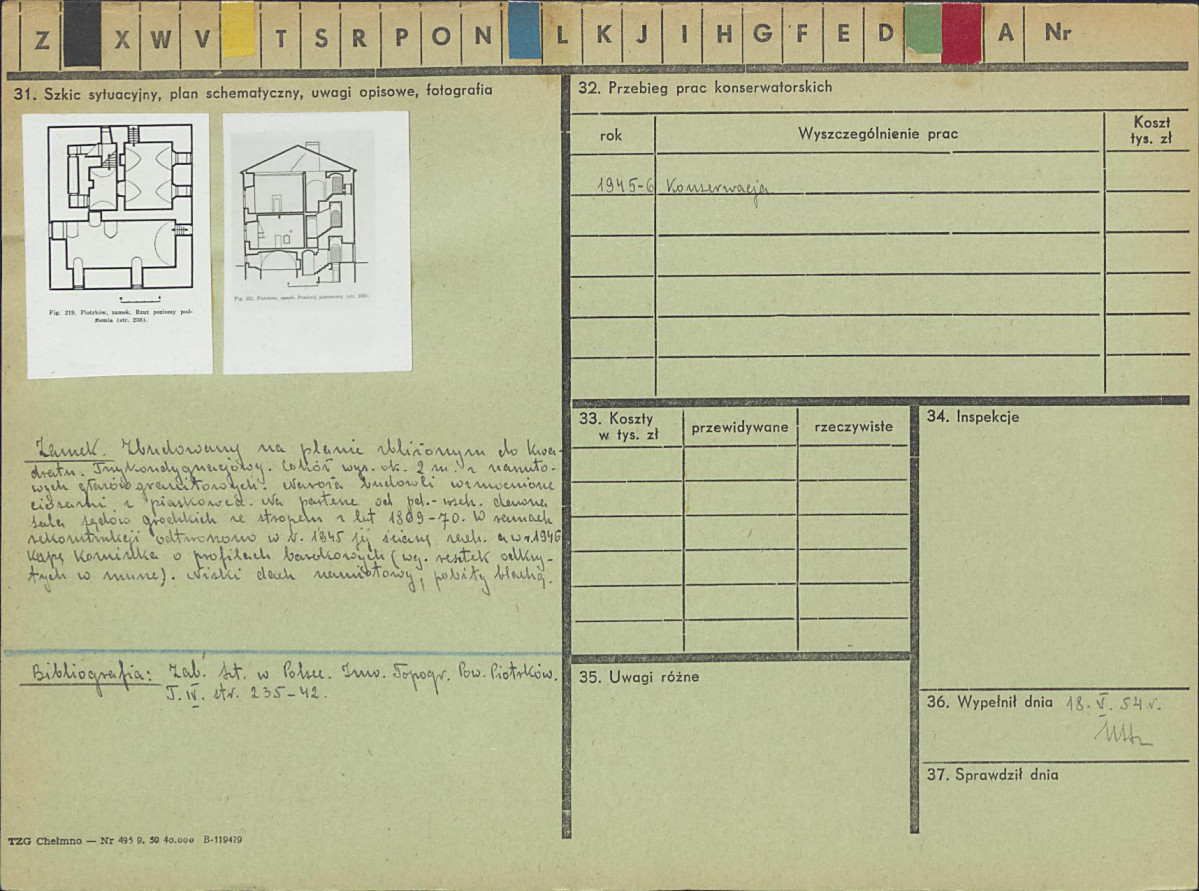 Z X W V T S R P O N L K J I H G F E D A Nr
31. Szkic sytuacyjny, plan schematyczny, uwagi opisowe, fotografia
Fig. 219. Piotrków, zamek. Rzut poziomy pod-
ziemia (str. 236).
Piotrków, zamek. Przekrój poprzeczny
Zamek. Zbudowany na planie zbliżonym do kwa-
dratu. Trzykondygnacjowy. Cokół wys. ok. 2 m. z narzuto-
wych głazów granitowych. Naroża budowli wzmocnione
ciosami z piaskowca. Na parterze od pd.-wsch. dawna
sala sądów grodzkich ze stropem z lat 1869-70. W ramach
rekonstrukcji odtworzono w r. 1945 jej ścianę zach. a w r. 1946
kapę kominka o profilach barokowych (wg. resztek odkry-
tych w murze). Niski dach namiotowy, pobity blachą.
Bibliografia: Zab. Szt. w Polsce. Inw. Topogr. Pow. Piotrków.
T. IV. str. 235-42.
TZG Chełmno — Nr 495 9. 50 40.000 B-119479
32. Przebieg prac konserwatorskich
rok Wyszczególnienie prac Koszt
tys. zł
1945-6 Konserwacja
33. Koszty
w tys. zł przewidywane rzeczywiste
34. Inspekcje
35. Uwagi różne
36. Wypełnił dnia 18. V. 54 r.
37. Sprawdził dnia